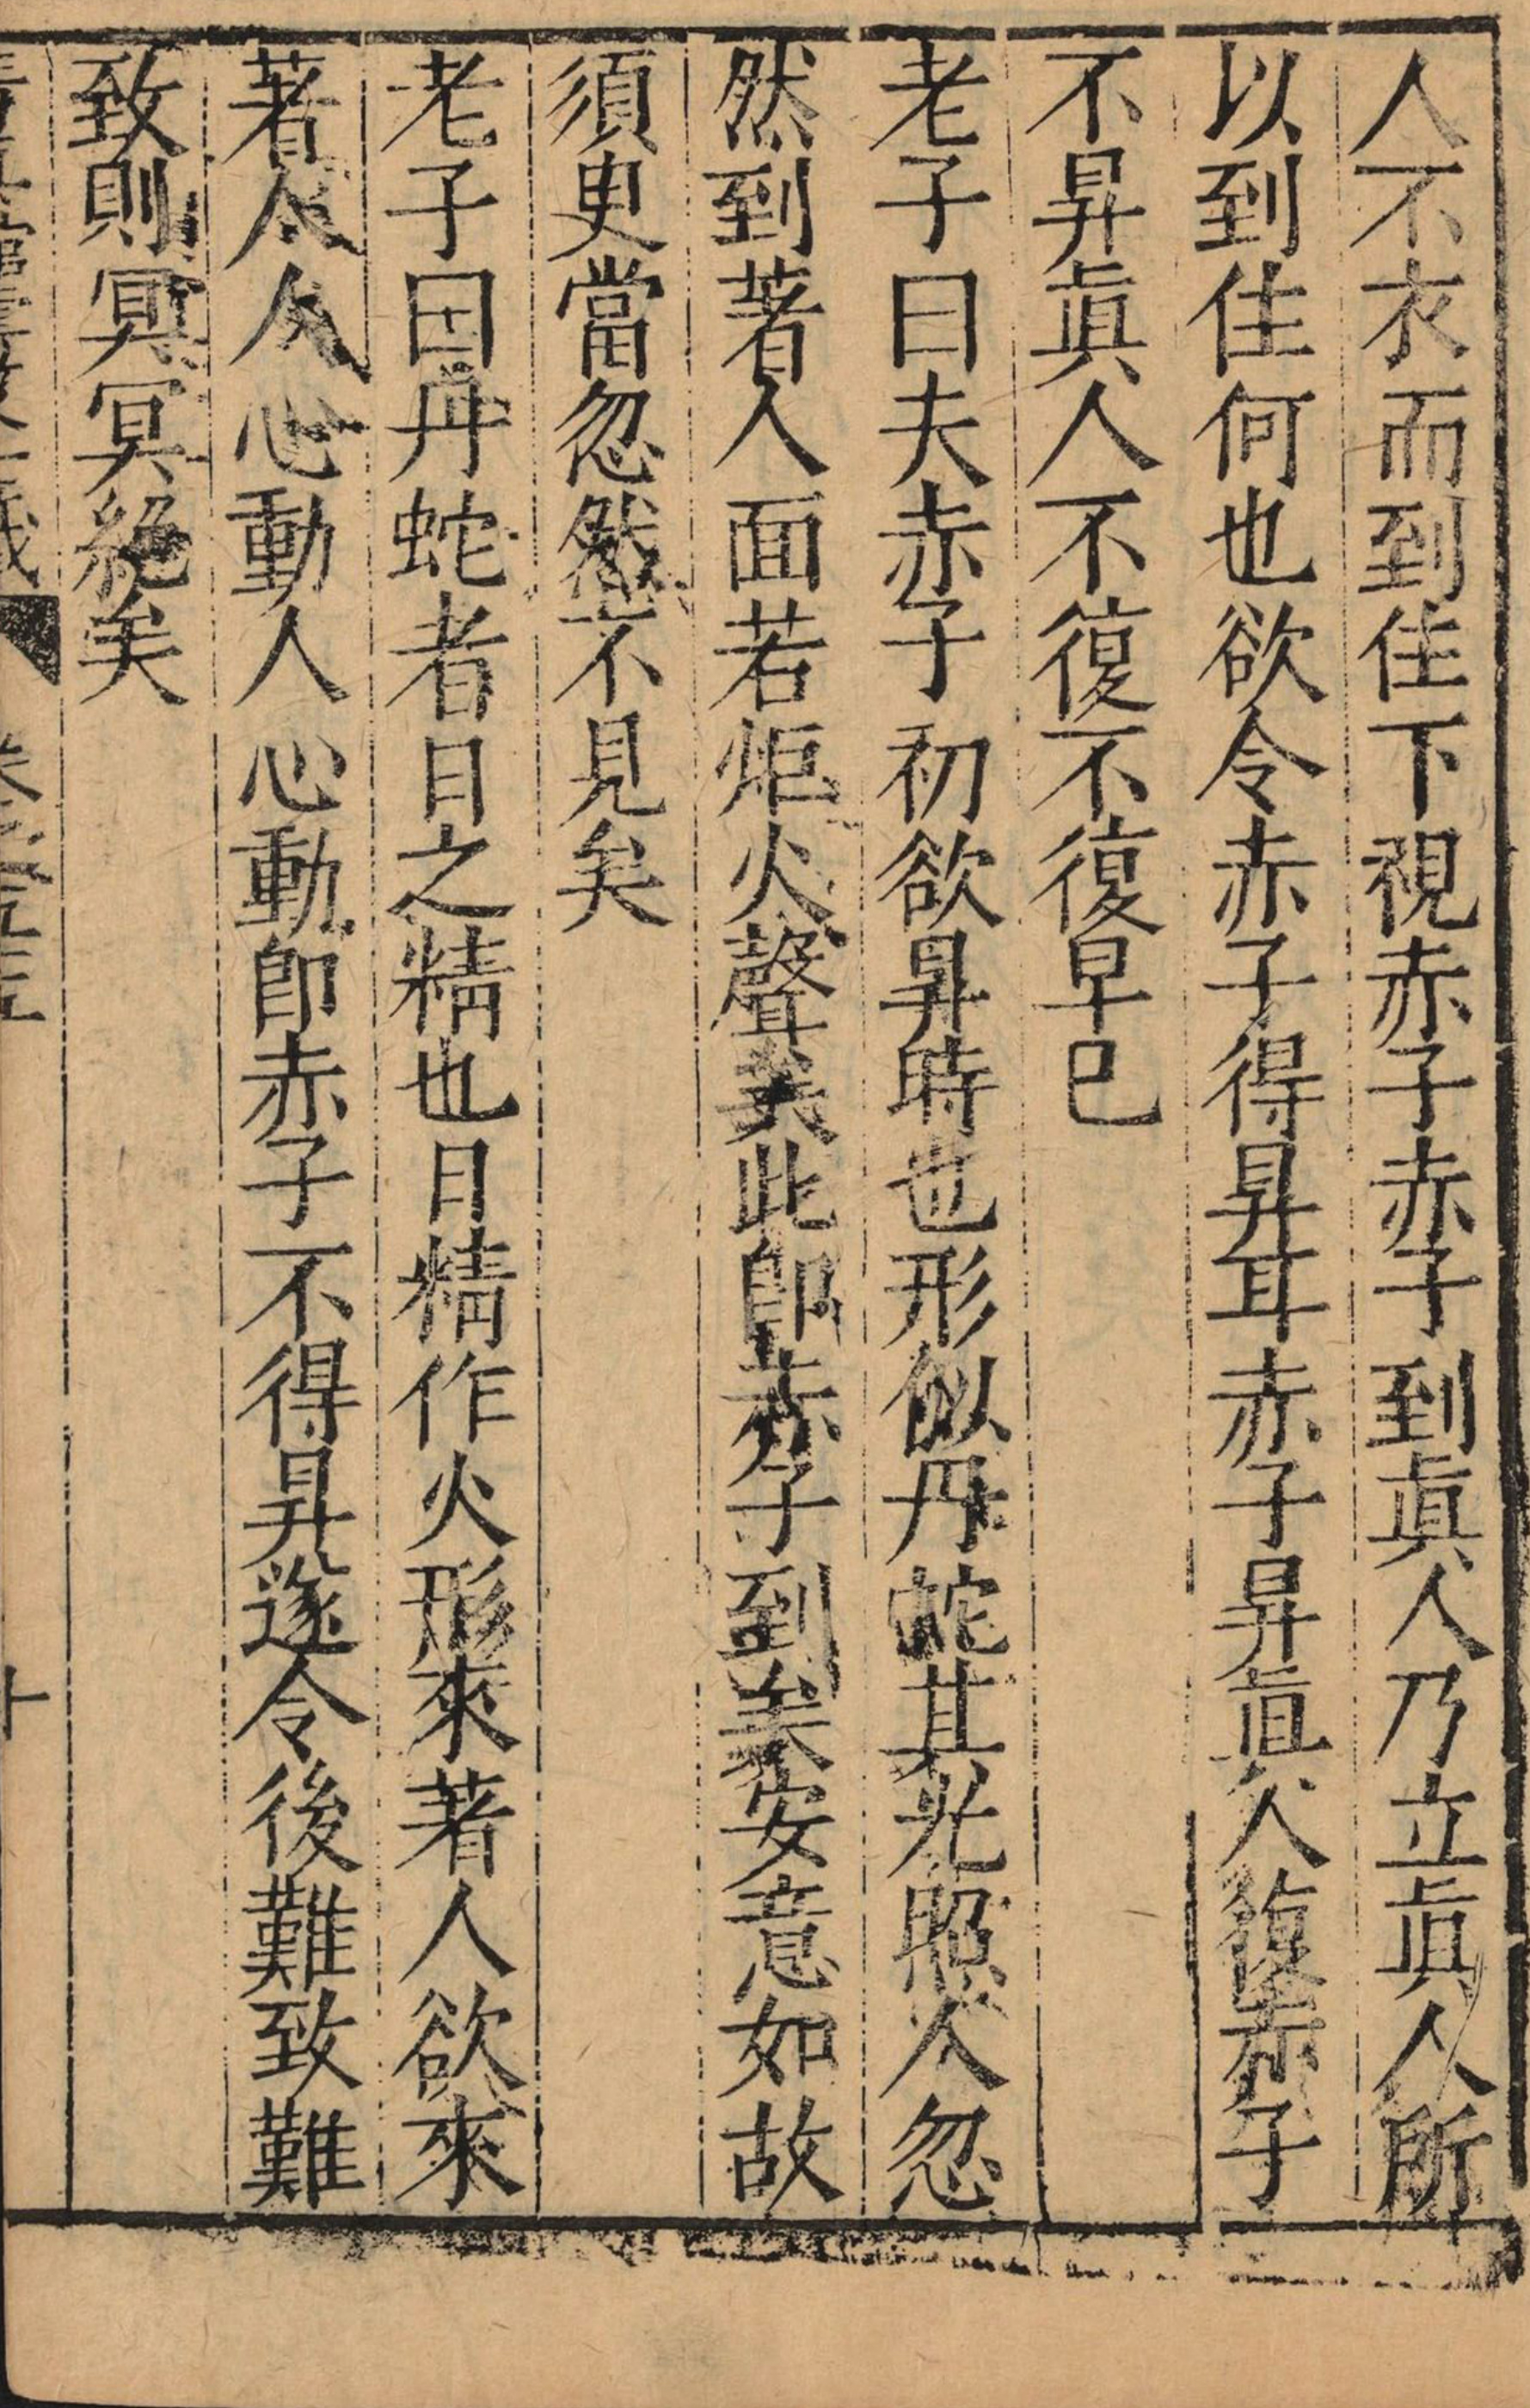 人不衣而到住下視赤子赤子到眞人乃立眞人所
以到住何也欲令赤子得昇耳赤子昇眞人復赤子
不昇眞人不復不復早已
老子曰夫赤子初欲昇時也形似丹蛇其光照人忽
然到著人面若炬火聲美此即赤子到美安意如故
須臾當忽然不見矣
老子曰丹蛇者日之精也日精作火形來著人欲來
著人人心動人心動即赤子不得昇遂令後難致難
致則冥冥絕矣